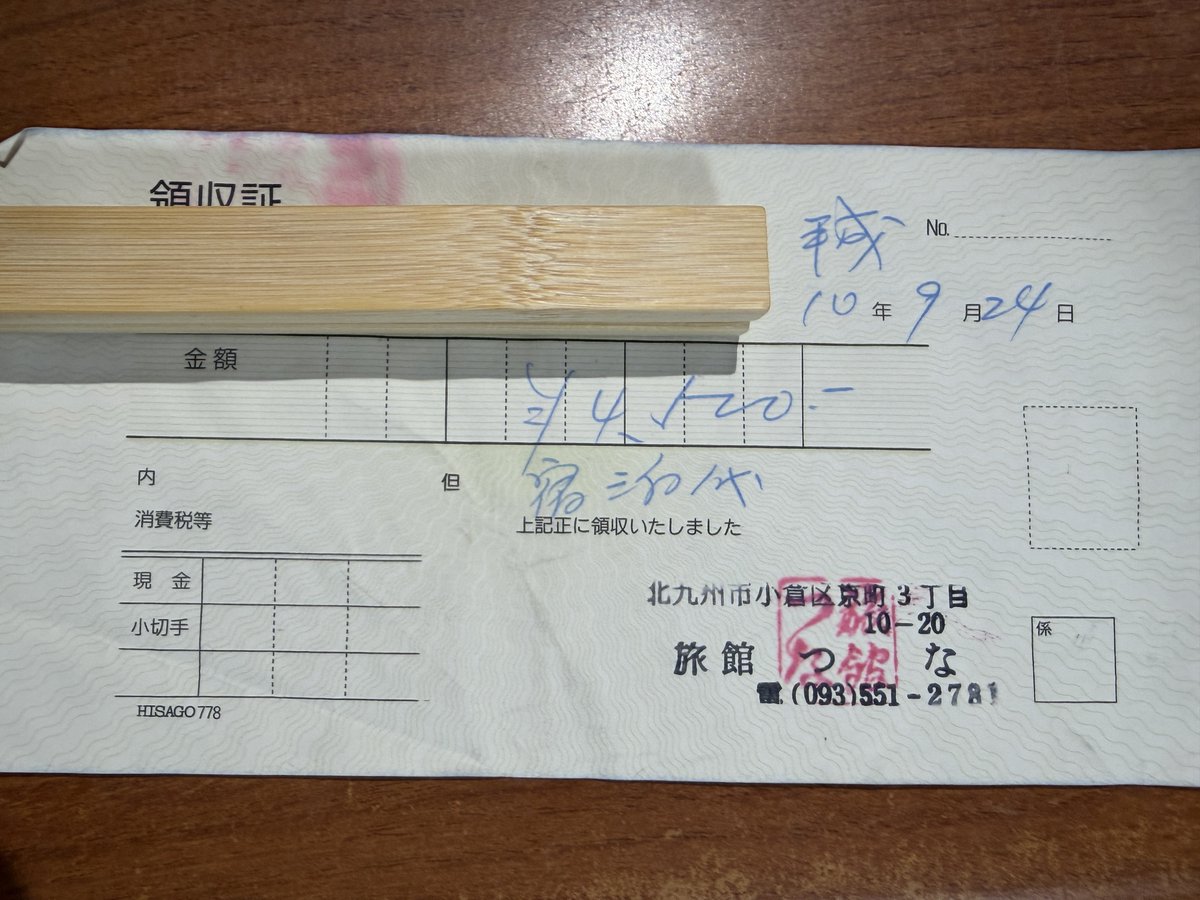 領収証
平成
No.
10年9月24日
金額
¥4,500.-
内
但 宿泊代
消費税等
上記正に領収いたしました
現金
小切手
北九州市小倉区京町3丁目
10-20
旅館 つな
電(093)551-2781
係
HISAGO 778